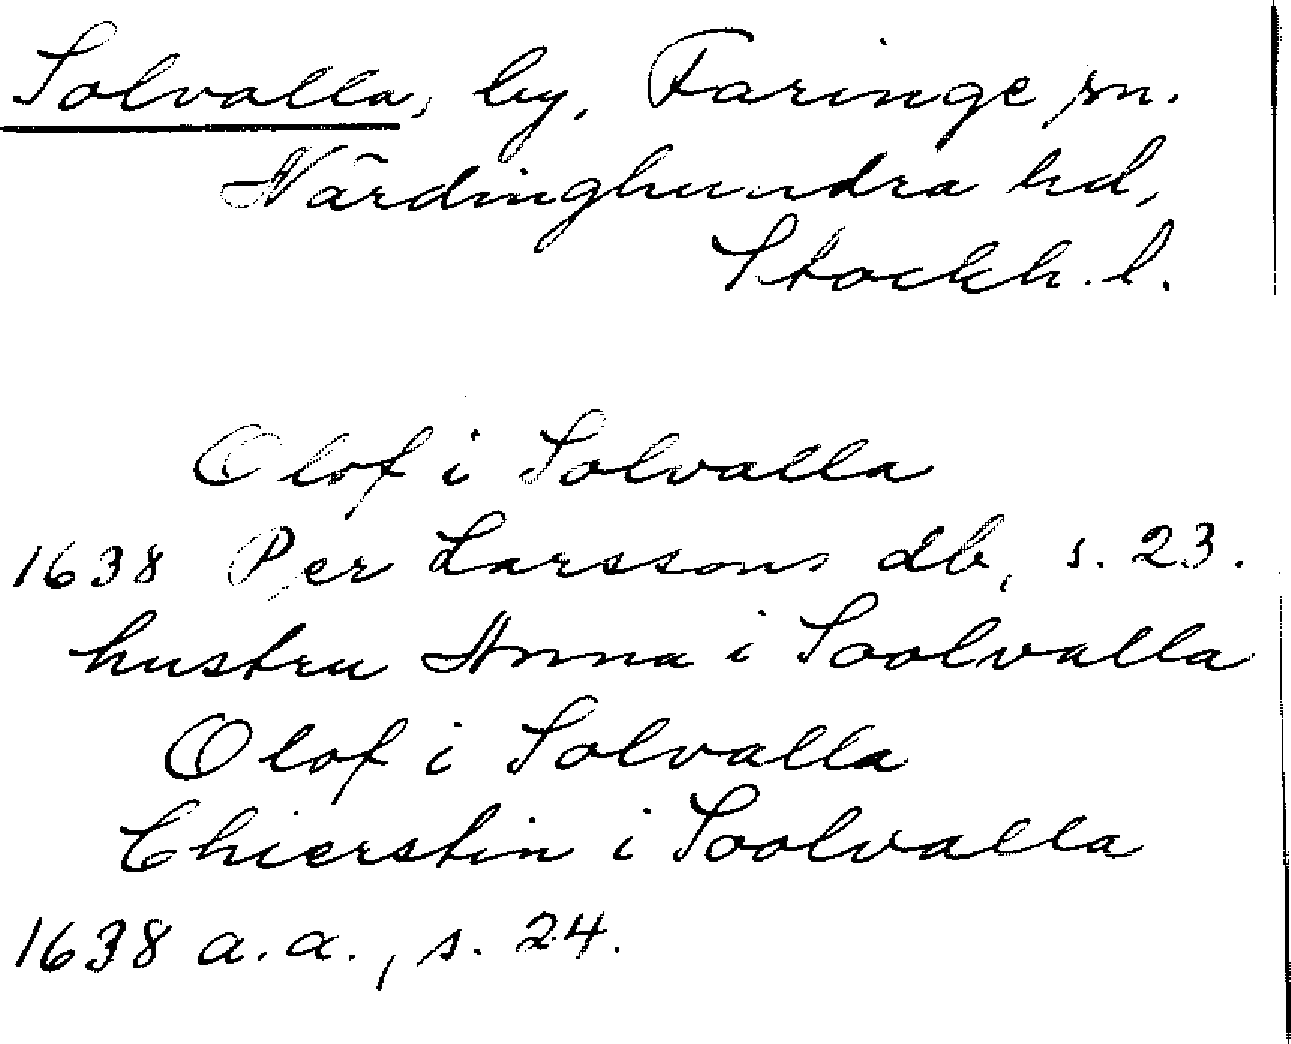 Solvalla, by, Faringe sn.
Närdinghundra hd,
Stockh. l.
Olof i Solvalla
1638 Per Larssons db, s. 23.
hustru Anna i Soolvalla
Olof i Solvalla
Chierstin i Soolvalla
1638 a.a., s. 24.